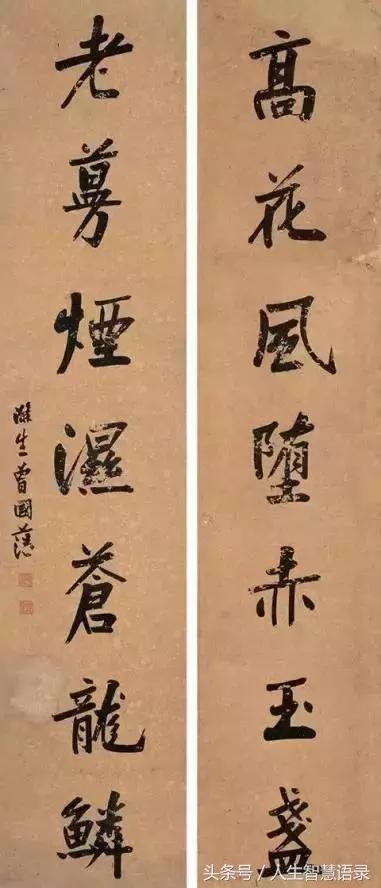 高花風墮赤玉盞
老蔓煙濕蒼龍鱗
滌生曾國藩
头条号／人生智慧语录